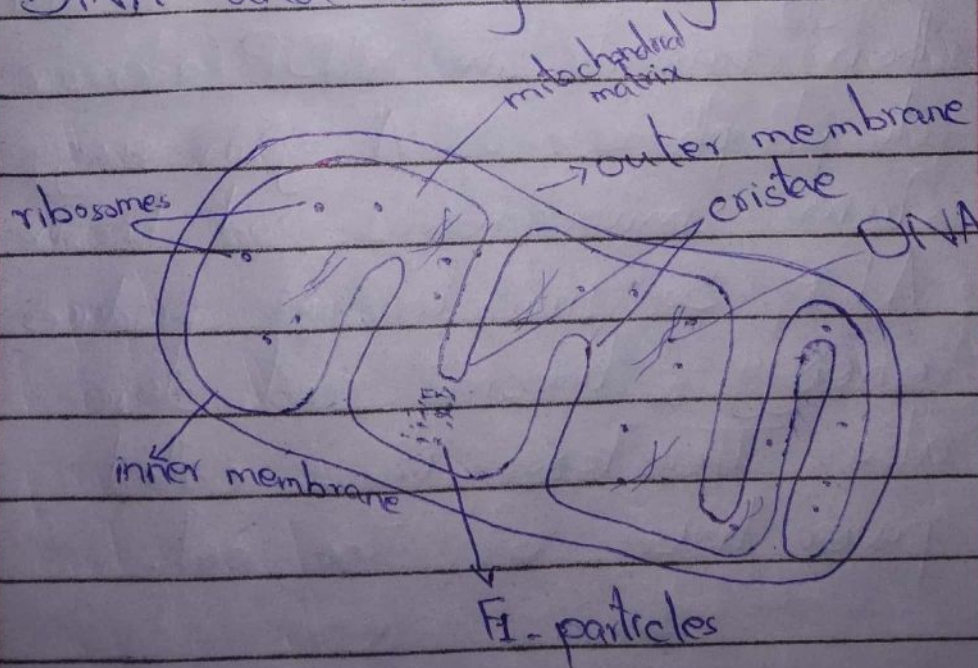 DNA
mitochondrial
matrix
outer membrane
cristae
ribosomes
DNA
inner membrane
F1-particles